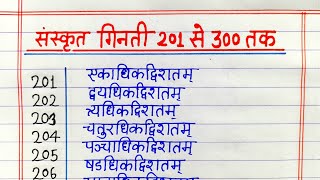 संस्कृत गिनती 201 से 300 तक
201 एकाधिकद्विशतम्
202 द्वयधिकद्विशतम्
203 त्र्यधिकद्विशतम्
204 चतुराधिकद्विशतम्
205 पञ्चाधिकद्विशतम्
206 षडधिकद्विशतम्